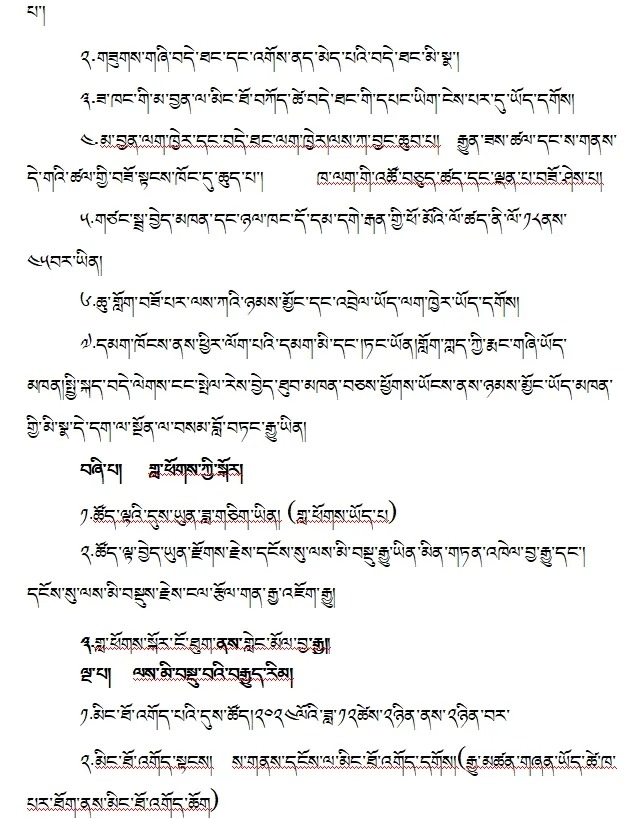 པ།
༢.གཟུགས་གཞི་བདེ་ཐང་དང་འགོས་ནད་མེད་པའི་བདེ་ཐང་མི་སྣ།
༣.ཟ་ཁང་གི་མ་བྱན་ལ་མིང་ཐོ་བཀོད་ཚེ་བདེ་ཐང་གི་དཔང་ཡིག་ངེས་པར་དུ་ཡོད་དགོས།
༤.མ་བྱན་ལག་ཁྱེར་དང་བདེ་ཐང་ལག་ཁྱེར།ལས་ཀ་བྱང་ཆུབ་པ། རྒྱུན་ཟས་ཚལ་དང་ས་གནས་
དེ་གའི་ཚལ་གྱི་བཟོ་སྟངས་ཁོང་དུ་ཆུད་པ། ཁ་ལག་གི་འཚོ་བཅུད་ཚད་དང་ལྡན་པ་བཟོ་ཤེས་པ།
༥.གཙང་སྦྲ་བྱེད་མཁན་དང་ཉལ་ཁང་དོ་དམ་དགེ་རྒན་གྱི་ཕོ་མོའི་ལོ་ཚད་ནི་ལོ་༡༨ནས་
༤༥བར་ཡིན།
༦.ཆུ་གློག་བཟོ་པར་ལས་ཀའི་ཉམས་མྱོང་དང་འབྲེལ་ཡོད་ལག་ཁྱེར་ཡོད་དགོས།
༧.དམག་ཁོངས་ནས་ཕྱིར་ལོག་པའི་དམག་མི་དང་།ཏང་ཡོན།གློག་ཀླད་ཀྱི་རྨང་གཞི་ཡོད་
མཁན།སྤྱི་སྐད་བདེ་ལེགས་ངང་སྤེལ་རེས་བྱེད་ཐུབ་མཁན་བཅས་ཕྱོགས་ཡོངས་ནས་ཉམས་མྱོང་ཡོད་མཁན་
གྱི་མི་སྣ་དེ་དག་ལ་སྔོན་ལ་བསམ་བློ་བཏང་རྒྱུ་ཡིན།
བཞི་པ། གླ་ཕོགས་ཀྱི་སྐོར།
༡.ཚོད་ལྟའི་དུས་ཡུན་ཟླ་གཅིག་ཡིན། (གླ་ཕོགས་ཡོད་པ)
༢.ཚོད་ལྟ་བྱེད་ཡུན་རྫོགས་རྗེས་དངོས་སུ་ལས་མི་བསྡུ་རྒྱུ་ཡིན་མིན་གཏན་འཁེལ་བྱ་རྒྱུ་དང་།
དངོས་སུ་ལས་མི་བསྡུས་རྗེས་ངལ་རྩོལ་གན་རྒྱ་འཇོག་རྒྱུ།
༣.གླ་ཕོགས་སྐོར་ངོ་ཐུག་ནས་གླེང་མོལ་བྱ་རྒྱུ།
ལྔ་པ། ལས་མི་བསྡུ་བའི་བརྒྱུད་རིམ།
༡.མིང་ཐོ་འགོད་པའི་དུས་ཚོད།༢༠༢༤ལོའི་ཟླ་༡༢ཚེས་༢ཉིན་ནས་༢ཉིན་བར་
༢.མིང་ཐོ་འགོད་སྟངས། ས་གནས་དངོས་ལ་མིང་ཐོ་འགོད་དགོས།(རྒྱུ་མཚན་གཞན་ཡོད་ཚེ་ཁ་
པར་ཐོག་ནས་མིང་ཐོ་འགོད་ཆོག)